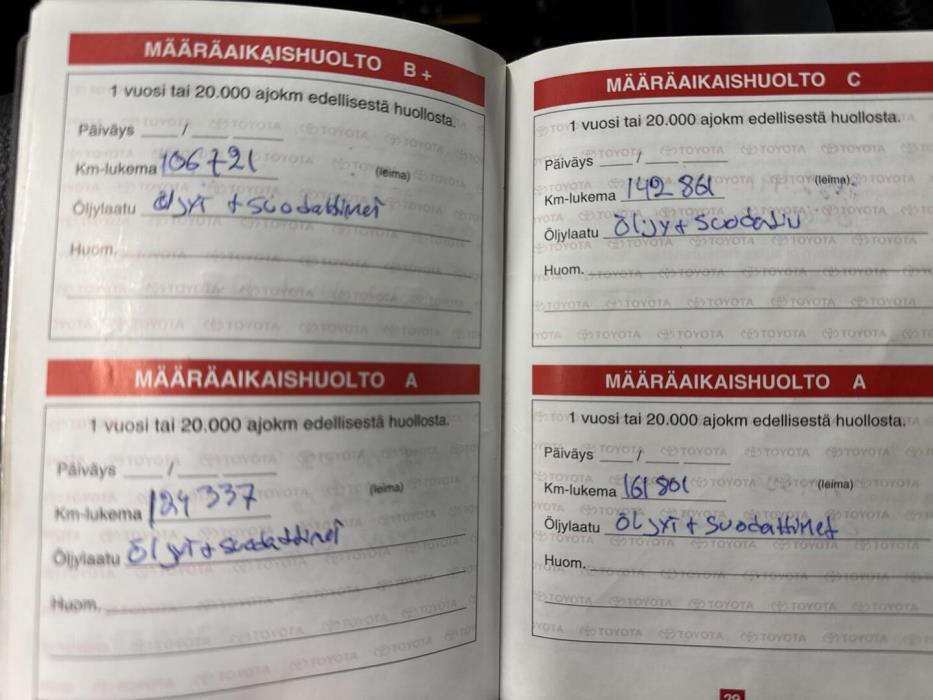 MÄÄRÄAIKAISHUOLTO B+
1 vuosi tai 20.000 ajokm edellisestä huollosta.
Päiväys ___ / ___ ___
Km-lukema 106721 (leima)
Öljylaatu Öljyt + Suodattimet
Huom.
MÄÄRÄAIKAISHUOLTO A
1 vuosi tai 20.000 ajokm edellisestä huollosta.
Päiväys ___ / ___ ___
Km-lukema 124 337 (leima)
Öljylaatu Öljyt + Suodattimet
Huom.
MÄÄRÄAIKAISHUOLTO C
1 vuosi tai 20.000 ajokm edellisestä huollosta.
Päiväys ___ / ___ ___
Km-lukema 142 861 (leima)
Öljylaatu Öljy + Suodatin
Huom.
MÄÄRÄAIKAISHUOLTO A
1 vuosi tai 20.000 ajokm edellisestä huollosta.
Päiväys ___ / ___ ___
Km-lukema 161 801 (leima)
Öljylaatu Öljyt + Suodattimet
Huom.
29